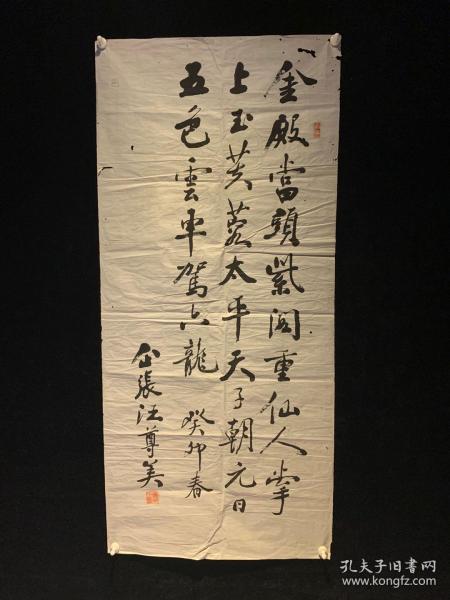 金殿當頭紫阁重仙人掌
上玉芙蓉太平天子朝元日
五色雲車駕六龍 癸卯春
張汪尊美
孔夫子旧书网
www.kongfz.com